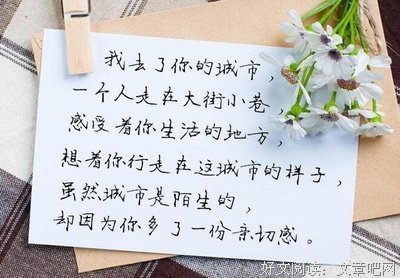 我去了你的城市，
一个人走在大街小巷，
感受着你生活的地方，
想着你行走在这城市的样子，
虽然城市是陌生的，
却因为你多了一份亲切感。
好文阅读：文章吧网